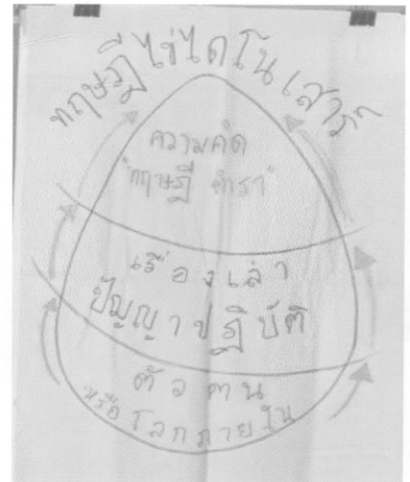 ทฤษฎีไข่ไดโนเสาร์
ความคิด
"ทฤษฎี ตำรา"
เรื่องเล่า
ปัญญาปฏิบัติ
ตัวตน
หรือโลกภายใน